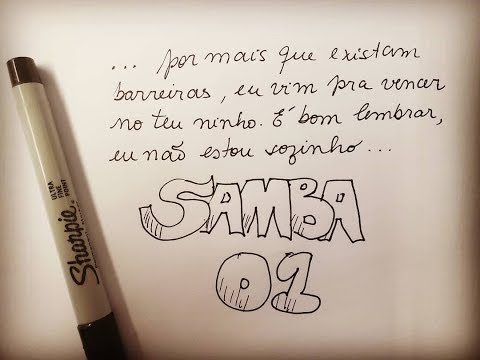 ... por mais que existam
barreiras, eu vim pra vencer
no teu ninho. É bom lembrar,
eu não estou sozinho...
SAMBA
01
Sharpie
ULTRA
FINE
POINT